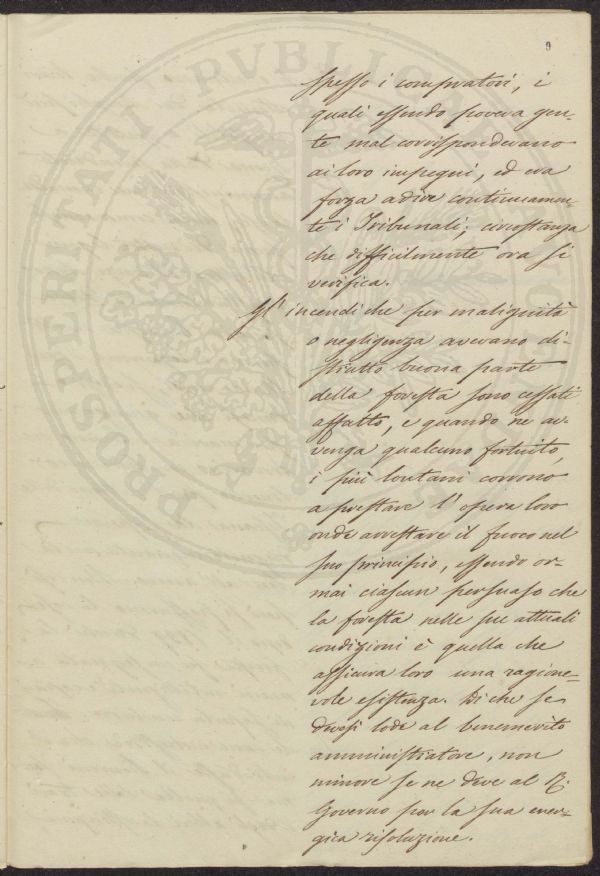 9
spesso i compratori, i
quali essendo povera gen=
te mal corrispondevano
ai loro impegni, ed era
forza adire continuamen=
te i Tribunali; circostanza
che difficilmente ora si
verifica.
Gl'incendi che per malignità
o negligenza avevano di=
strutto buona parte
della foresta sono cessati
affatto, e quando ne av=
venga qualcuno fortuito,
i più lontani corrono
a prestare l'opera loro
onde arrestare il fuoco nel
suo principio, essendo or=
mai ciascun persuaso che
la foresta nelle sue attuali
condizioni è quella che
assicura loro una ragione=
vole esistenza. Di che se
devesi lode al benemerito
amministratore, non
minore se ne deve al R.
Governo per la sua ener=
gica risoluzione.
PROSPERITATI PVBLICAE